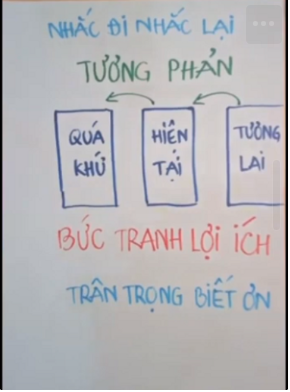 NHẮC ĐI NHẮC LẠI
TƯƠNG PHẢN
QUÁ KHỨ
HIỆN TẠI
TƯƠNG LAI
BỨC TRANH LỢI ÍCH
TRÂN TRỌNG BIẾT ƠN